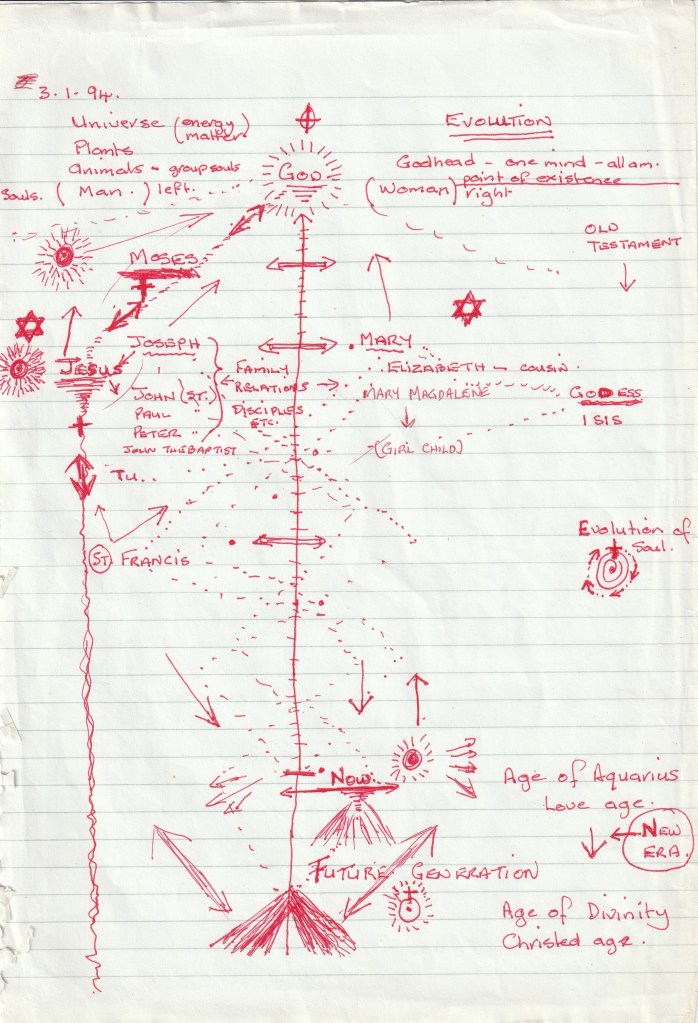 3.1.94.
Universe (energy matter)
Plants
Animals - group souls
Souls. (Man.) left.
GOD
EVOLUTION
Godhead - one mind - all am.
point of existence
(Woman) right
OLD
TESTAMENT
MOSES
JESUS
JOSEPH
JOHN (ST.
PAUL "
PETER "
JOHN THE BAPTIST
FAMILY
RELATIONS
DISCIPLES
ETC.
MARY
ELIZABETH - COUSIN.
MARY MAGDALENE
(GIRL CHILD)
GODESS
ISIS
TU..
(ST) FRANCIS
Evolution of
Soul.
NOW.
Age of Aquarius
Love age.
NEW
ERA.
FUTURE GENERATION
Age of Divinity
Christed age.